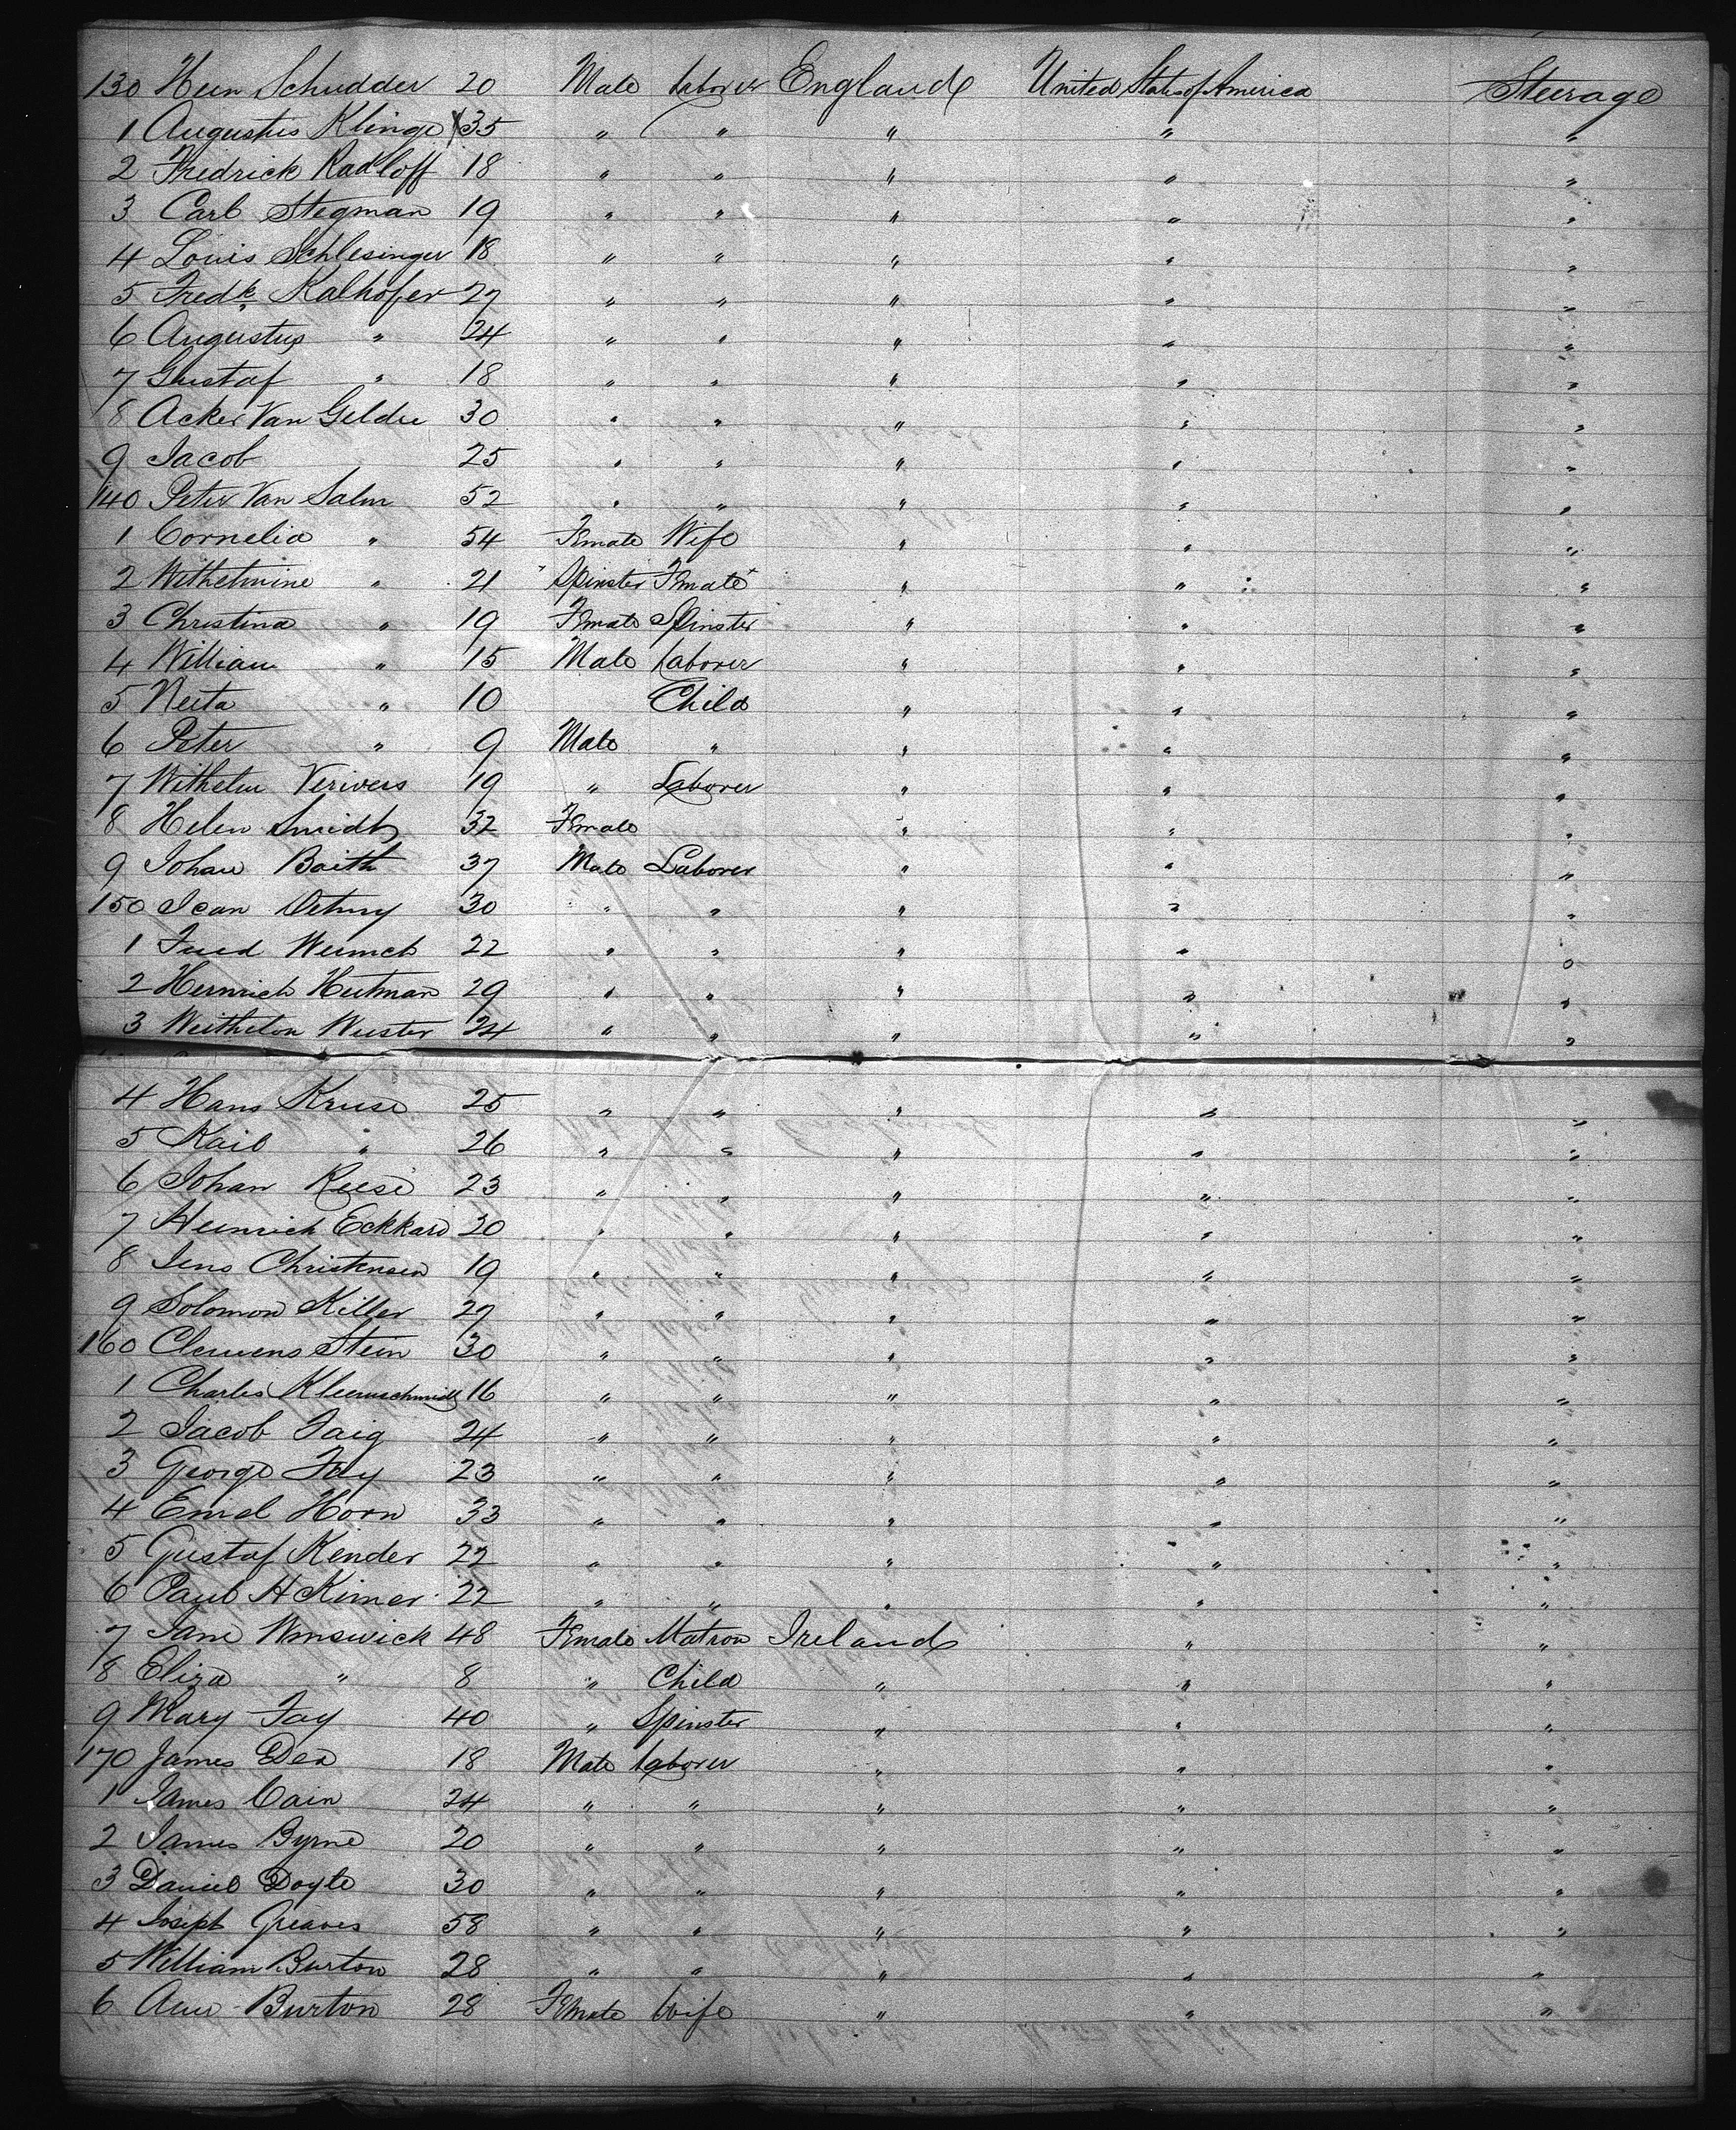 130 Hein Schudder 20 Male Laborer England United States of America Steerage
1 Augustus Klinge 35 " " " " "
2 Fredrick Radloff 18 " " " " "
3 Carl Stegman 19 " " " " "
4 Louis Schlesinger 18 " " " " "
5 Fredk Kalhofer 27 " " " " "
6 Augustus " 24 " " " " "
7 Gustaf " 18 " " " " "
8 Acker Van Geldre 30 " " " " "
9 Jacob 25 " " " " "
140 Peter Van Salm 52 " " " " "
1 Cornelia " 54 Female Wife " " "
2 Wilhelmine " 21 "Spinster Female" " " "
3 Christina " 19 Female Spinster " " "
4 William " 15 Male Laborer " " "
5 Neeta " 10 Child " " "
6 Peter " 9 Male " " " "
7 Wilhelm Verivers 19 " Laborer " " "
8 Helen Smidt 32 Female " " "
9 Johan Baith 37 Male Laborer " " "
150 Jean 30 " " " " "
1 Fried 22 " " " " "
2 Heinrich Hutman 29 " " " " "
3 Weithelon Wuster 24 " " " " "
4 Hans Kruse 25 " " " " "
5 Kail " 26 " " " " "
6 Johan Reese 23 " " " " "
7 Heinrich Eckkard 20 " " " " "
8 Jens Christensen 19 " " " " "
9 Solomon Killer 27 " " " " "
160 Clemens Stein 30 " " " " "
1 Charles Kleinschmidt 16 " " " " "
2 Jacob Faig 24 " " " " "
3 George Fay 23 " " " " "
4 Emil Horn 33 " " " " "
5 Gustaf Kender 22 " " " " "
6 Paul H Kimer 22 " " " " "
7 Jane 48 Female Matron Ireland " "
8 Eliza " 8 " Child " " "
9 Mary Fay 40 " Spinster " " "
170 James Dea 18 Male Laborer " " "
1 James Cain 24 " " " " "
2 James Byrne 20 " " " " "
3 Daniel Doyle 30 " " " " "
4 Joseph Greaves 58 " " " " "
5 William Burton 28 " " " " "
6 Ann Burton 28 Female Wife " " "